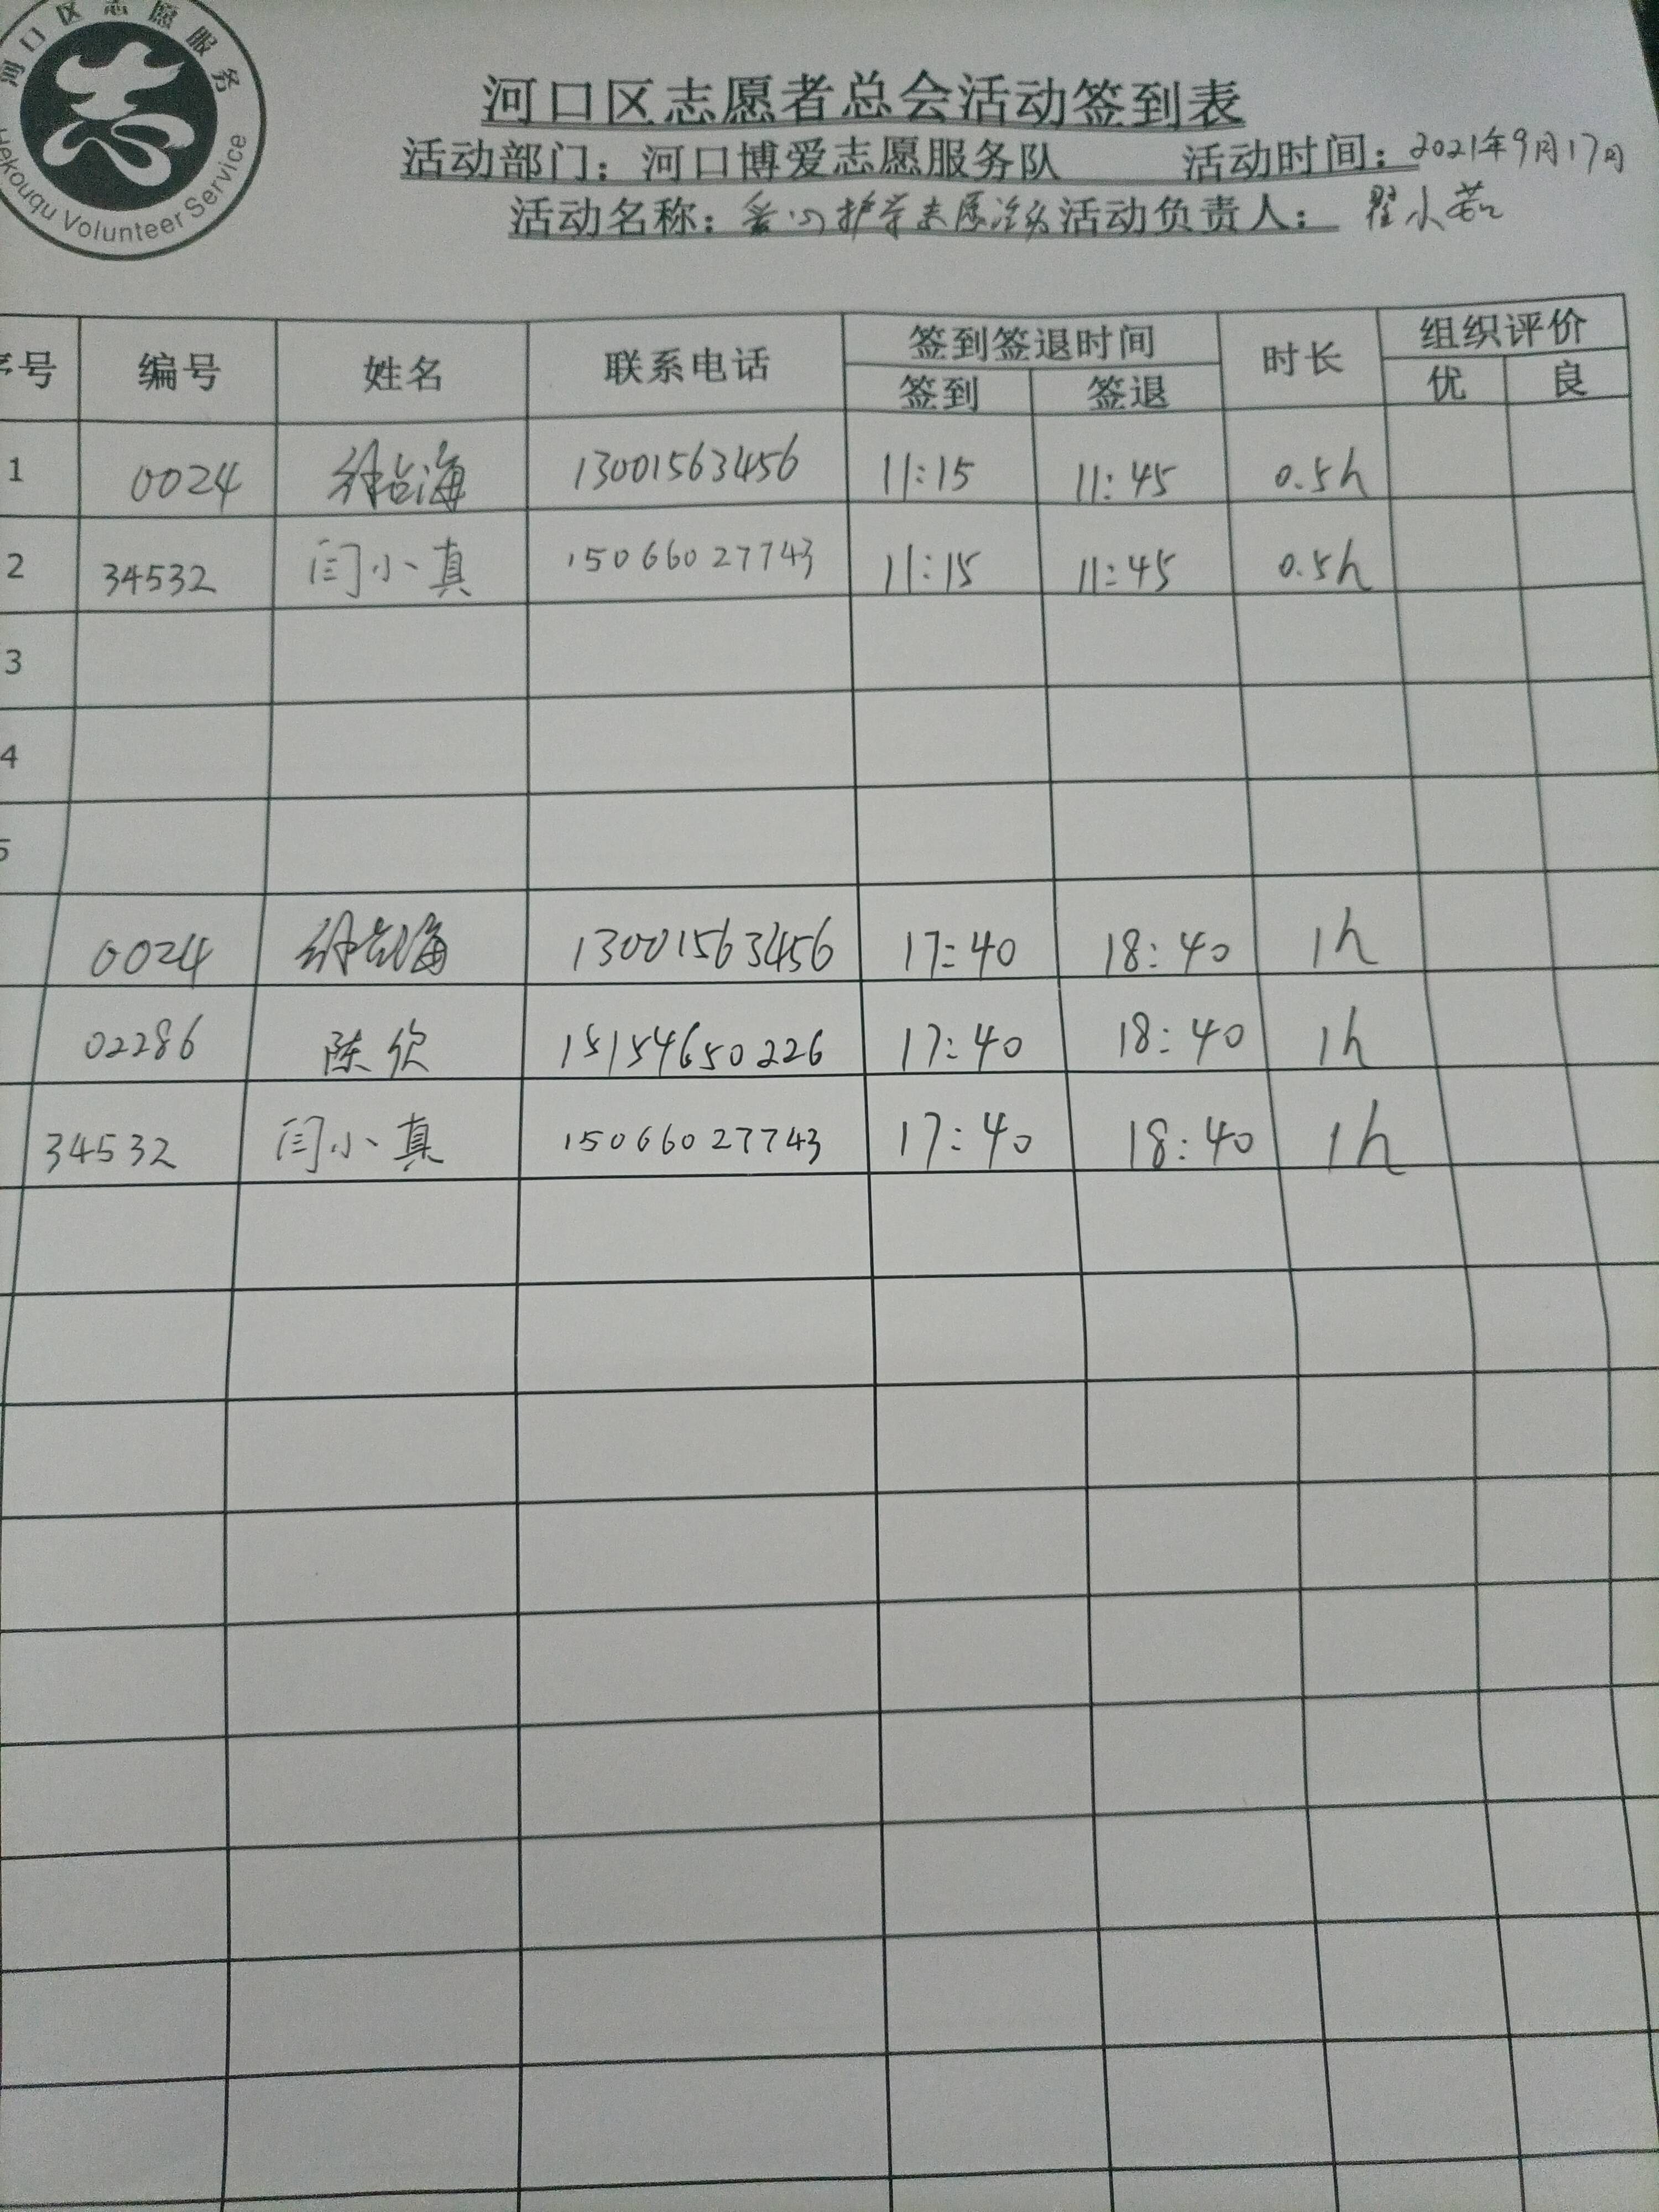 河口区志愿服务
Hekouqu Volunteer Service
河口区志愿者总会活动签到表
活动部门：河口博爱志愿服务队 活动时间：2021年9月17日
活动名称：爱心护学志愿活动 活动负责人：翟小
序号 编号 姓名 联系电话 签到签退时间 时长 组织评价
签到 签退 优 良
1 0024 海 13001563456 11:15 11:45 0.5h
2 34532 闫小真 15066027743 11:15 11:45 0.5h
3
4
5
0024 海 13001563456 17:40 18:40 1h
02286 陈欣 15154650226 17:40 18:40 1h
34532 闫小真 15066027743 17:40 18:40 1h